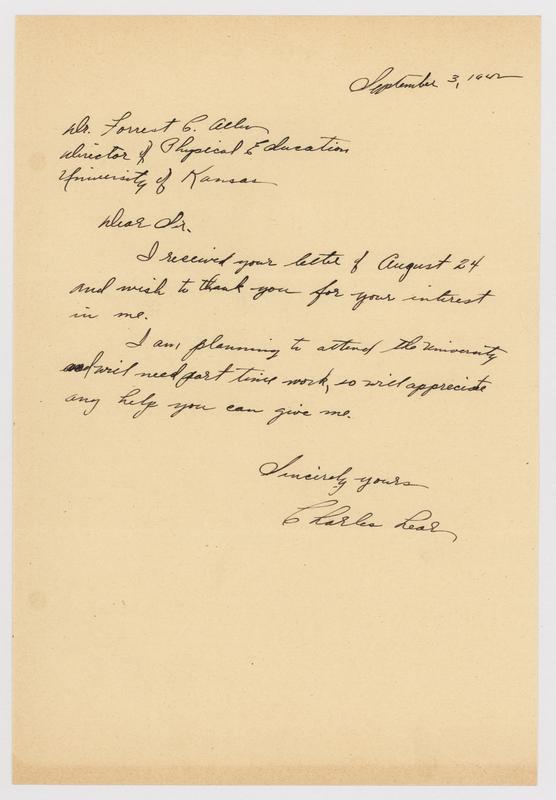 September 3, 1942
Dr. Forrest C. Allen
Director of Physical Education
University of Kansas
Dear Sr.
I received your letter of August 24
and wish to thank you for your interest
in me.
I am planning to attend the University
and will need part time work, so will appreciate
any help you can give me.
Sincerely yours
Charles Lear